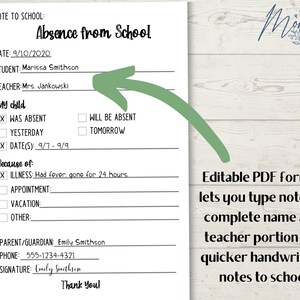 NOTE TO SCHOOL:
Absence from School
DATE: 9/10/2020
STUDENT: Marissa Smithson
TEACHER: Mrs. Jankowski
My child
X WAS ABSENT
WILL BE ABSENT
YESTERDAY
TOMORROW
X DATE(S): 9/7 - 9/9
Because of:
X ILLNESS: Had fever, gone for 24 hours.
APPOINTMENT:
VACATION:
OTHER:
PARENT/GUARDIAN: Emily Smithson
PHONE: 555-1234-4321
SIGNATURE: Emily Smithson
Thank You!
Editable PDF for
lets you type note
complete name
teacher portion
quicker handwri
notes to school